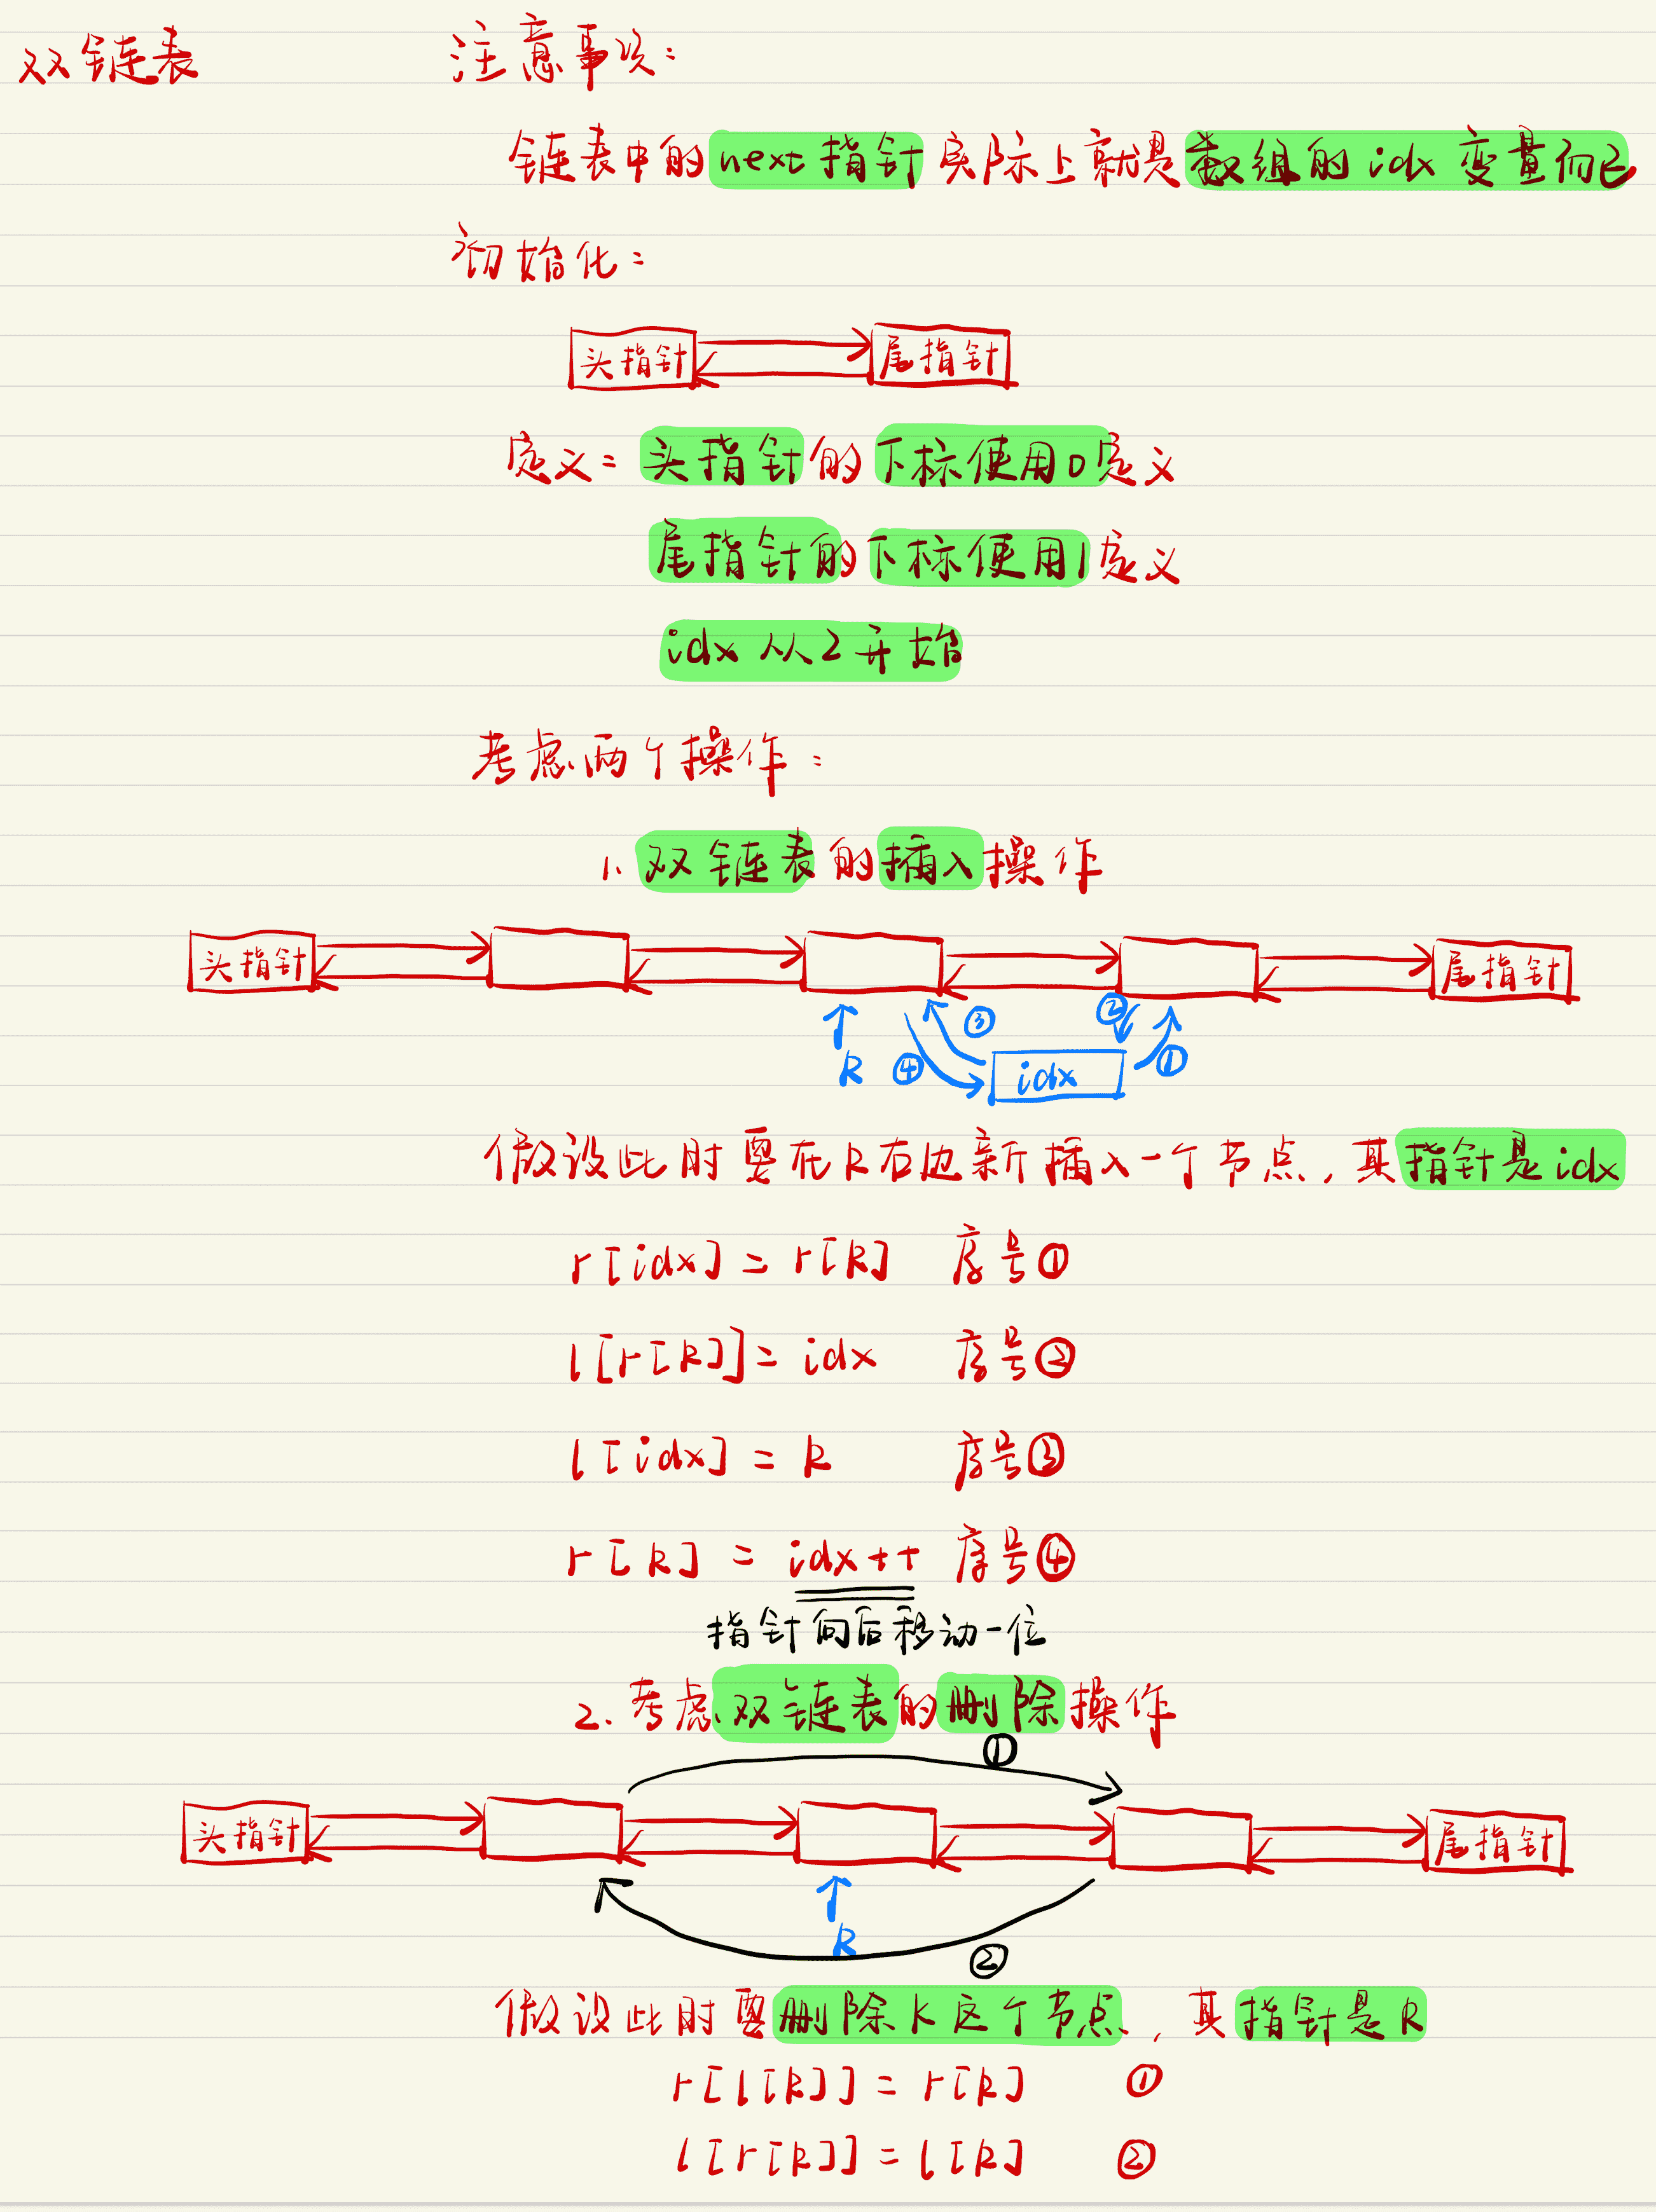 双链表 注意事项：
链表中的next指针实际上就是数组的idx变量而已
初始化：
头指针 尾指针
定义：头指针的下标使用0定义
尾指针的下标使用1定义
idx从2开始
考虑两个操作：
1. 双链表的插入操作
头指针 尾指针
③ ②
k ④ idx ①
假设此时要在k右边新插入一个节点，其指针是idx
r[idx] = r[k] 序号①
l[r[k]] = idx 序号②
l[idx] = k 序号③
r[k] = idx++ 序号④
指针向后移动一位
2. 考虑双链表的删除操作
①
头指针 尾指针
k
②
假设此时要删除k这个节点，其指针是k
r[l[k]] = r[k] ①
l[r[k]] = l[k] ②